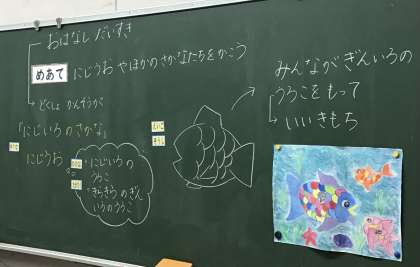 おはなし だいすき
めあて
にじうお やほかのさかなたちをかこう
どくしょ かんそうが
「にじいろのさかな」
にじうお
・にじいろの
うろこ
・きらきらのぎん
いろのうろこ
みんながぎんいろの
うろこをもって
いいきもち